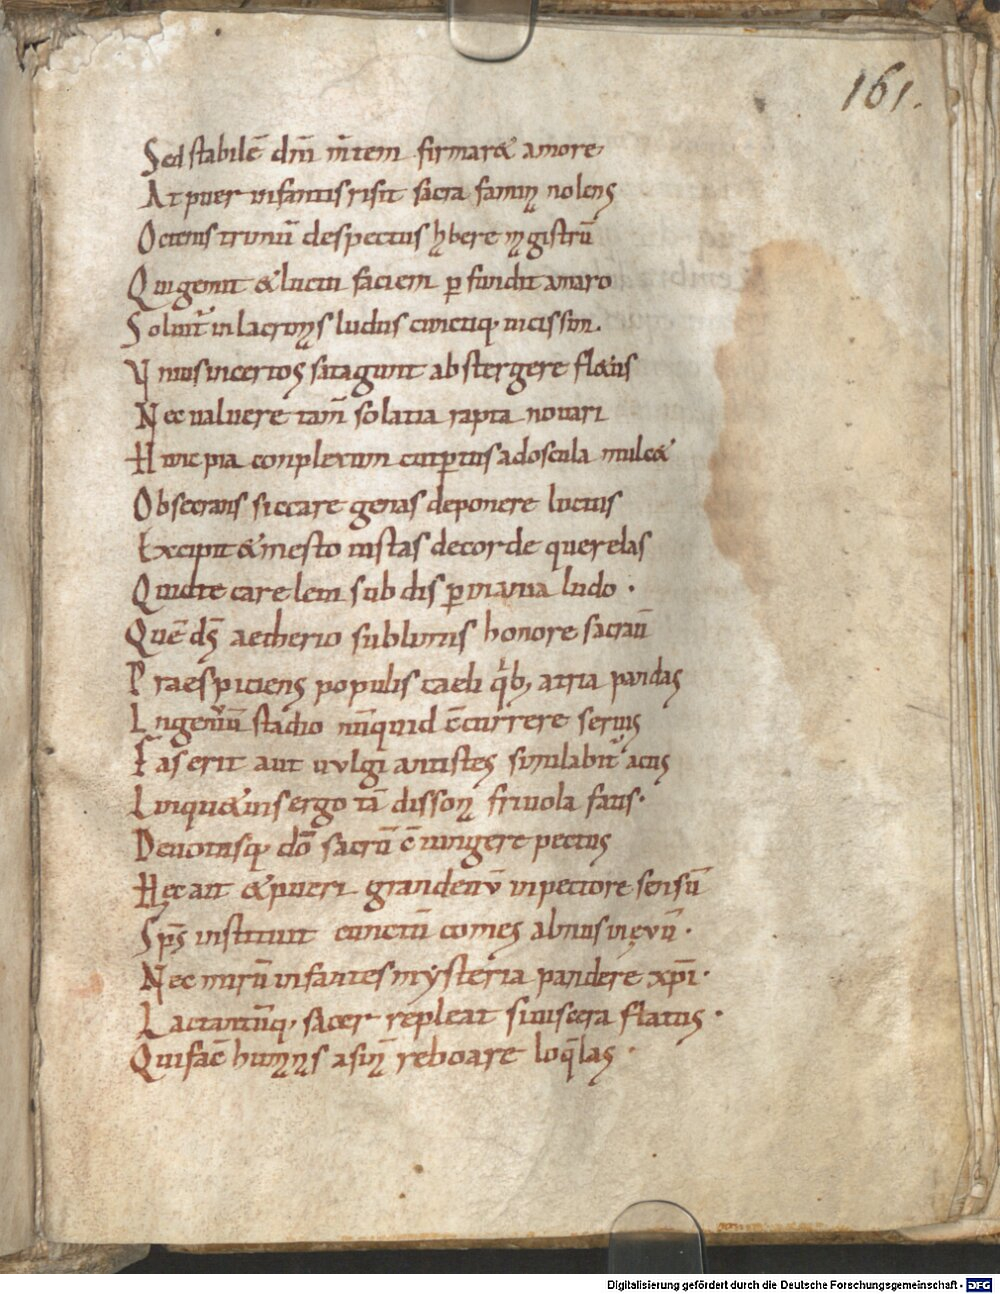 161.
Sed stabilē dñi m̄tem firmar& amore
At puer infantis risit sacra famin̄ nolens
Ocius trunū despectus hbere mgistrū
Qui gemit & luctu faciem ꝑfundit amaro
Soluit̄ in lacrimis ludus cunctiq; uicissim.
Vnius incertos satagunt abstergere fl&us
Nec ualuere tam̄ solatia rapta nouari
Hunc pia conplexum ad oscula mulc&
Obsecrans siccare genas deponere luctus
Excipit & mesto iustas de corde querelas
Quid te care leui subdis ꝑ inania ludo ·
Quē ds̄ aetherio sublimis honore sacrau
Praespiciens populis caeli qb; atria pandas
Ingenuū stadio nūquid c̄currere seruis
Fas erit aut uulgi antistes similabit̄ actis
Linqu& uis ergo tā disson friuola fatis·
Deuotusq; dō sacrū c̄iungere pectus
Hęc ait & pueri grandeuū in pectore sensū
Sps̄ instituit cunctū comes abnuis in ęvū ·
Nec mirū infantes mysteria pandere xp̄i·
Lactantūq; sacer repleat si uiscera flatus ·
Qui fac̄ humnis asin̄ reboare loq̄las ·
Digitalisierung gefördert durch die Deutsche Forschungsgemeinschaft - DFG